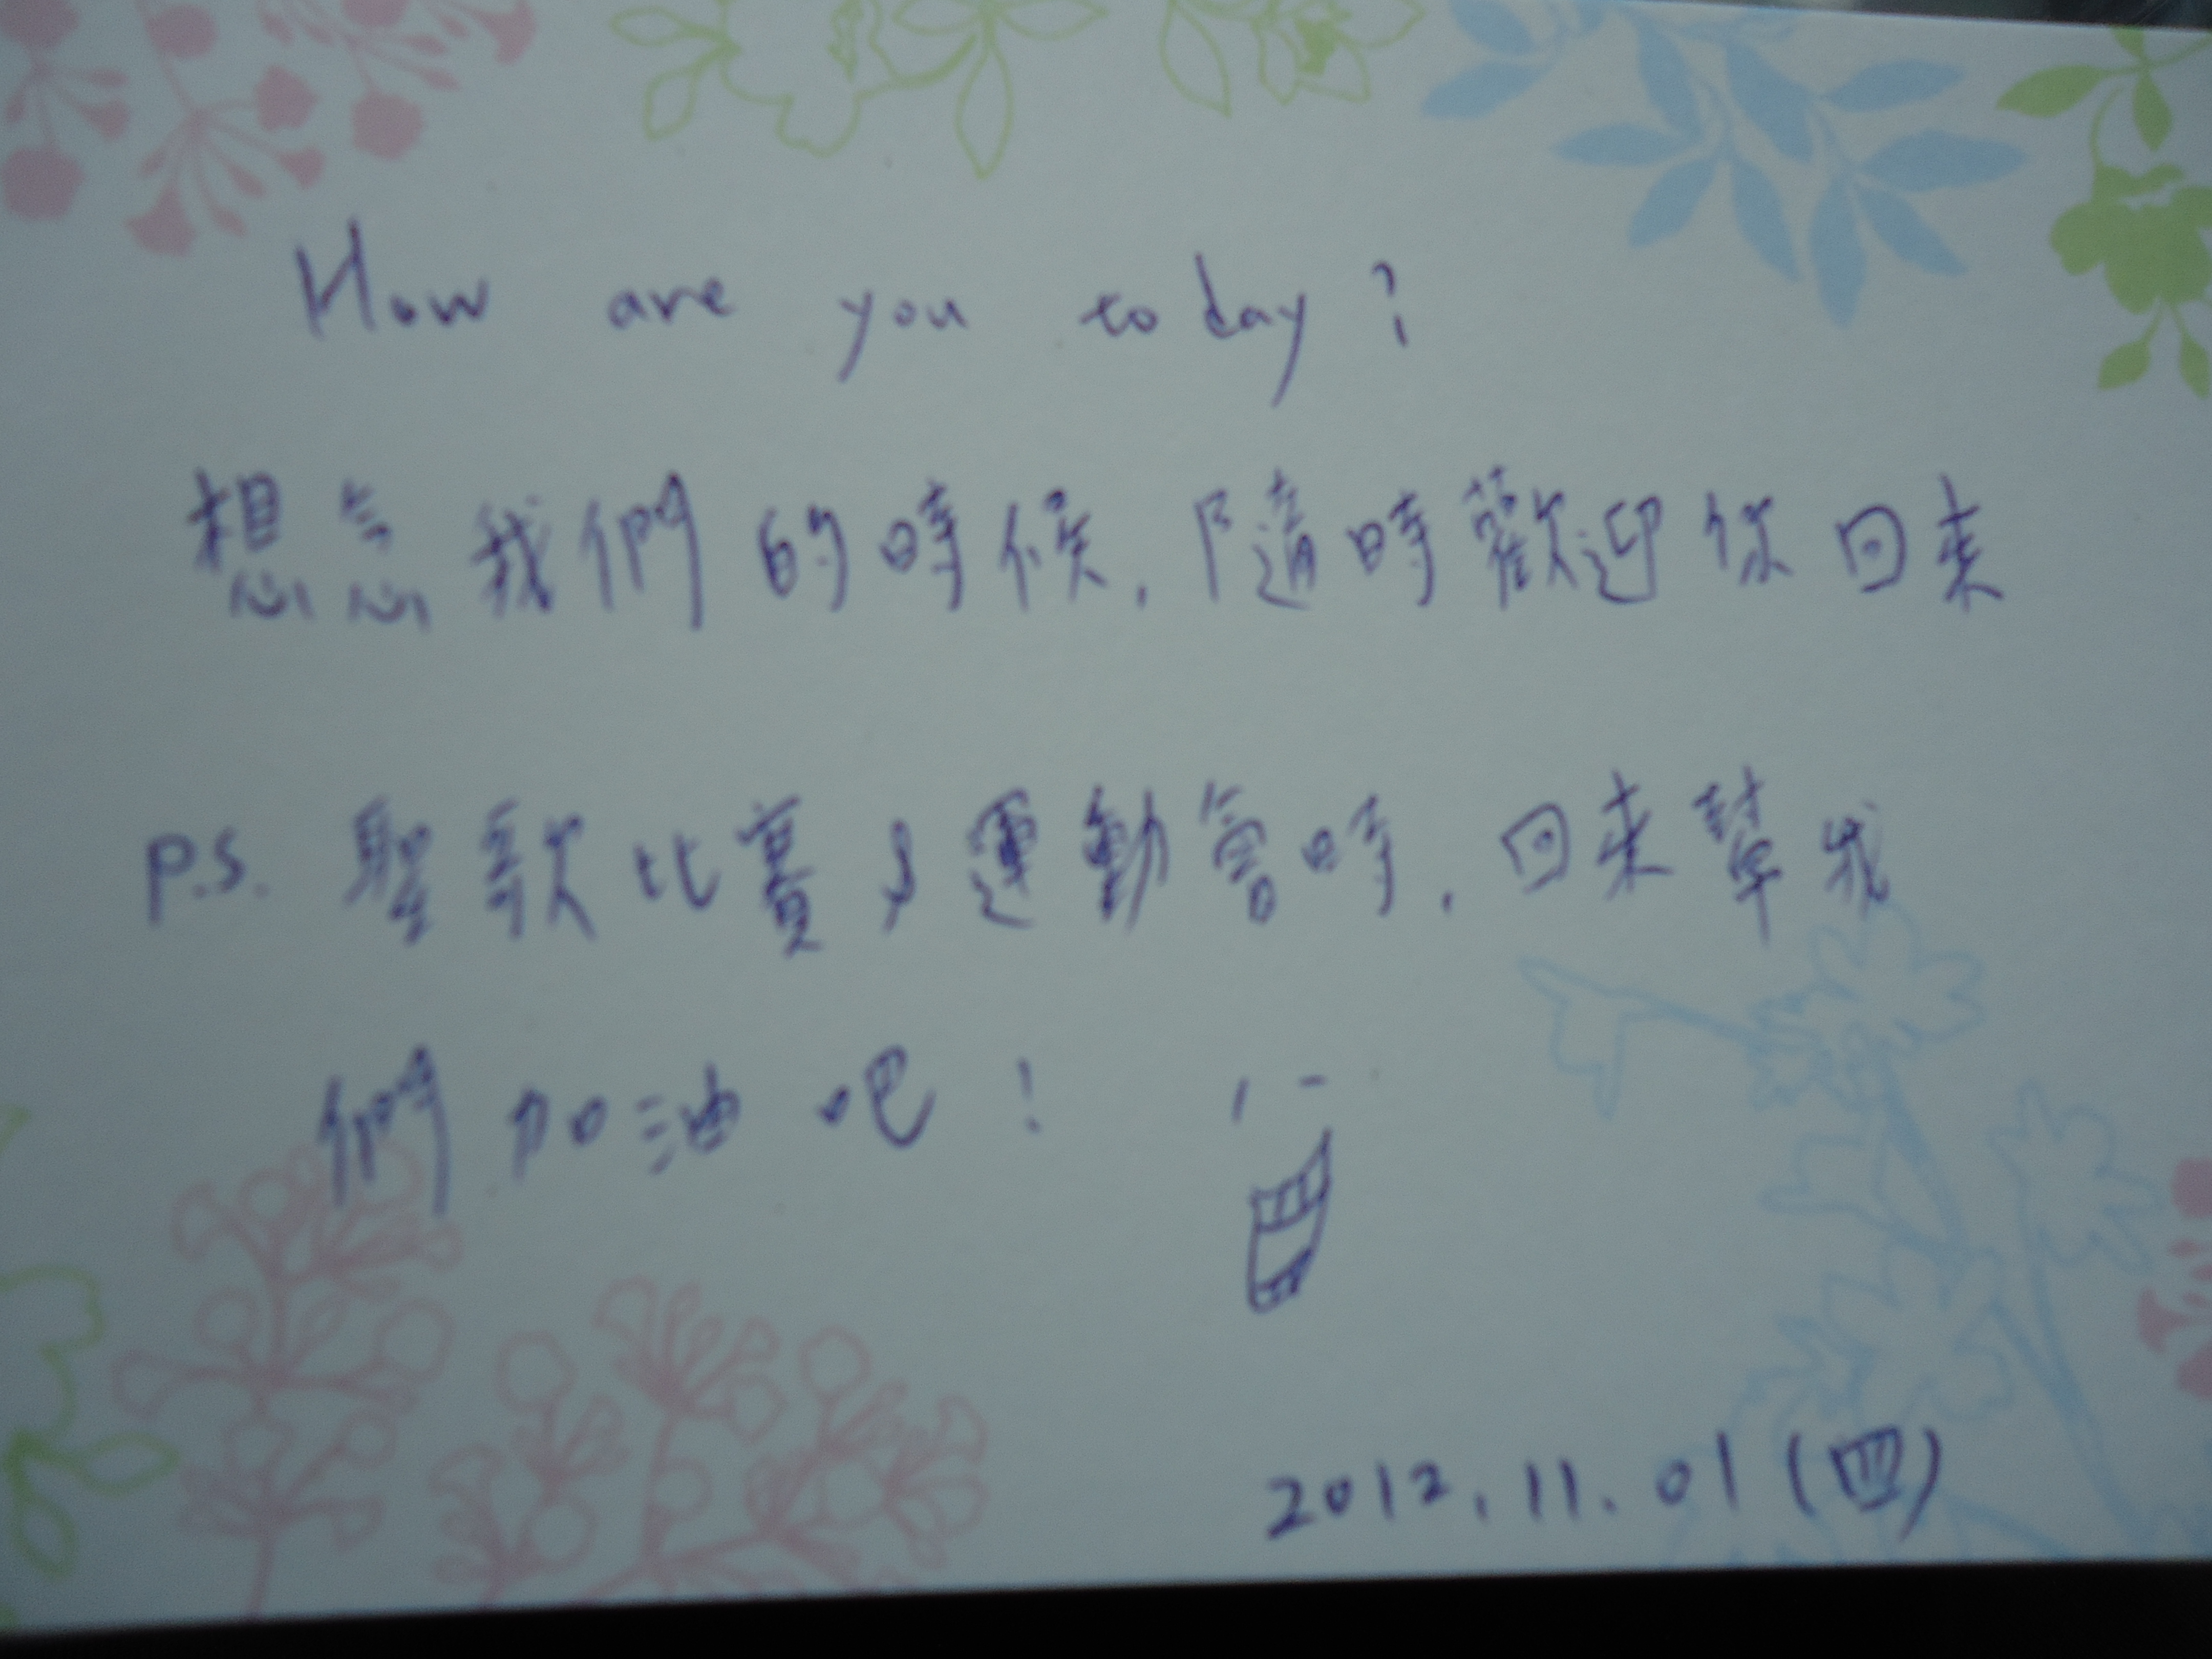 How are you today?
想念我們的時候,隨時歡迎你回來
P.S. 聖歌比賽&運動會時,回來幫我
們加油吧!
2012.11.01(四)